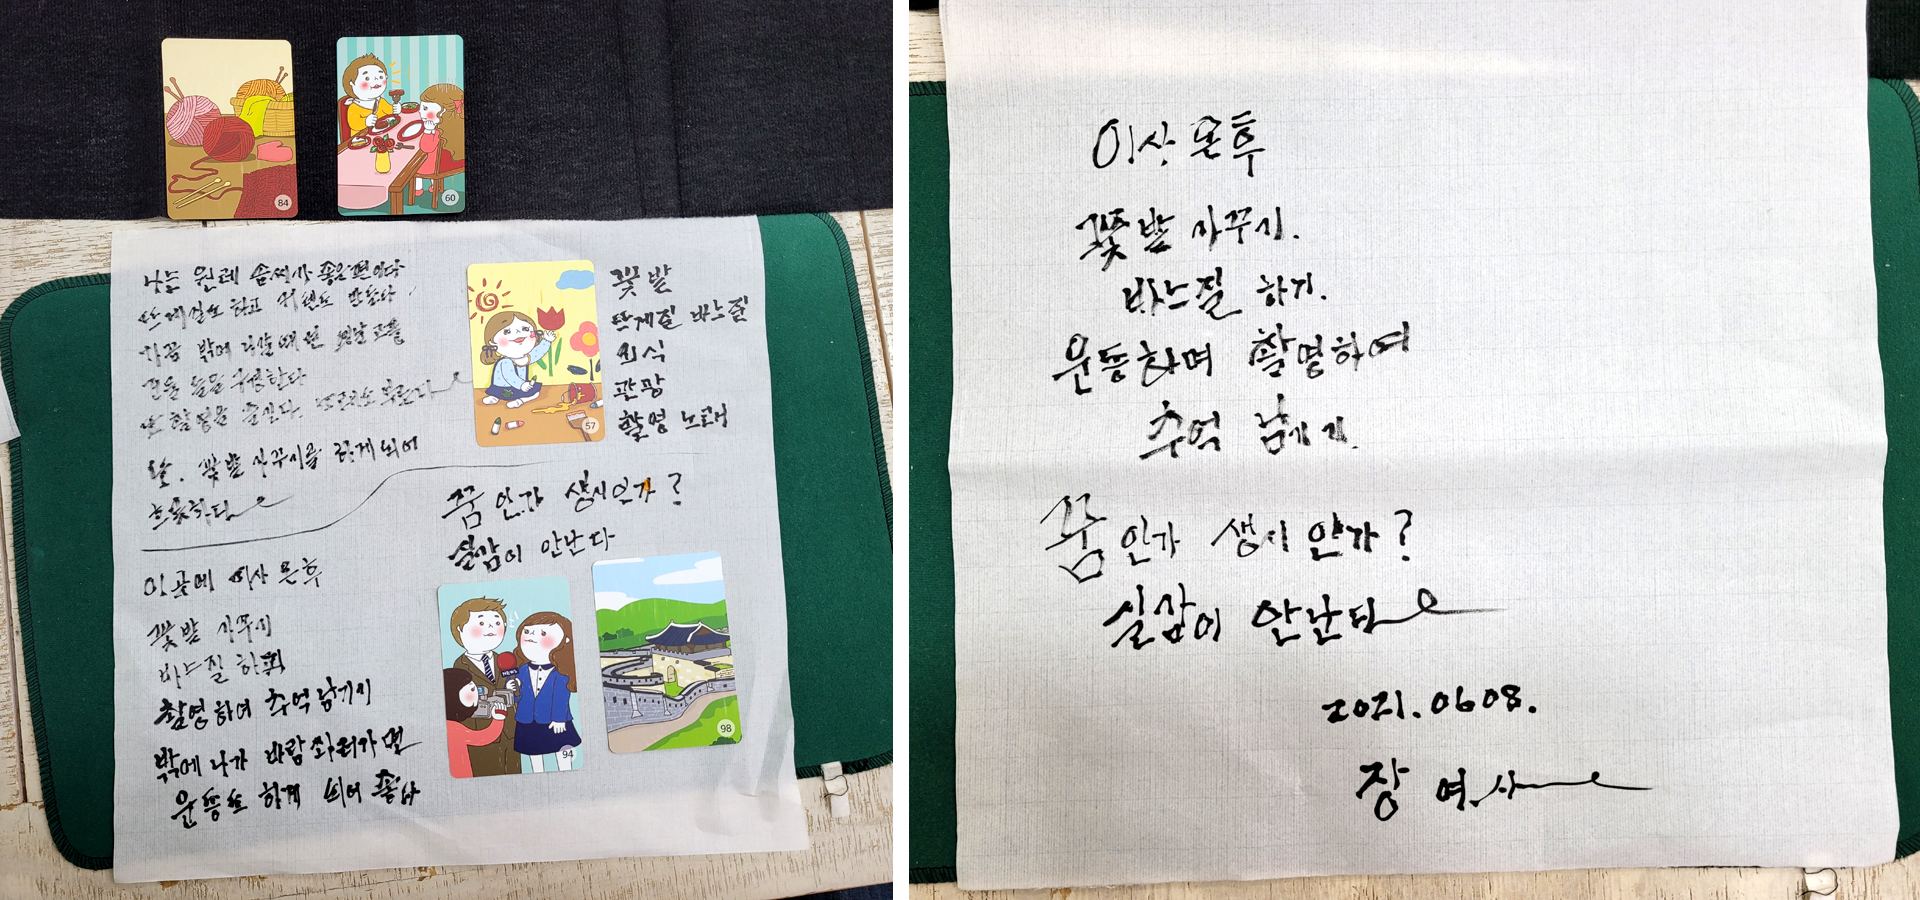 84
60
나는 원래 솜씨가 좋은 편이다
뜨게질도 하고 커텐도 만든다
가끔 밖에 나갈 때면
꽃밭 가꾸기를 하게 되어
흐뭇하다
57
꽃밭
뜨게질 바느질
외식
관광
촬영 노래
꿈인가 생시인가?
실감이 안난다
이곳에 이사 온 후
꽃밭 가꾸기
바느질 하고
촬영하여 추억 남기기
밖에 나가 바람 쏘이러 가면
운동도 하게 되어 좋다
94
98
이사 온 후
꽃밭 가꾸기.
바느질 하기.
운동하며 촬영하여
추억 남기기.
꿈인가 생시인가?
실감이 안난다
2021.0608.
장 여사